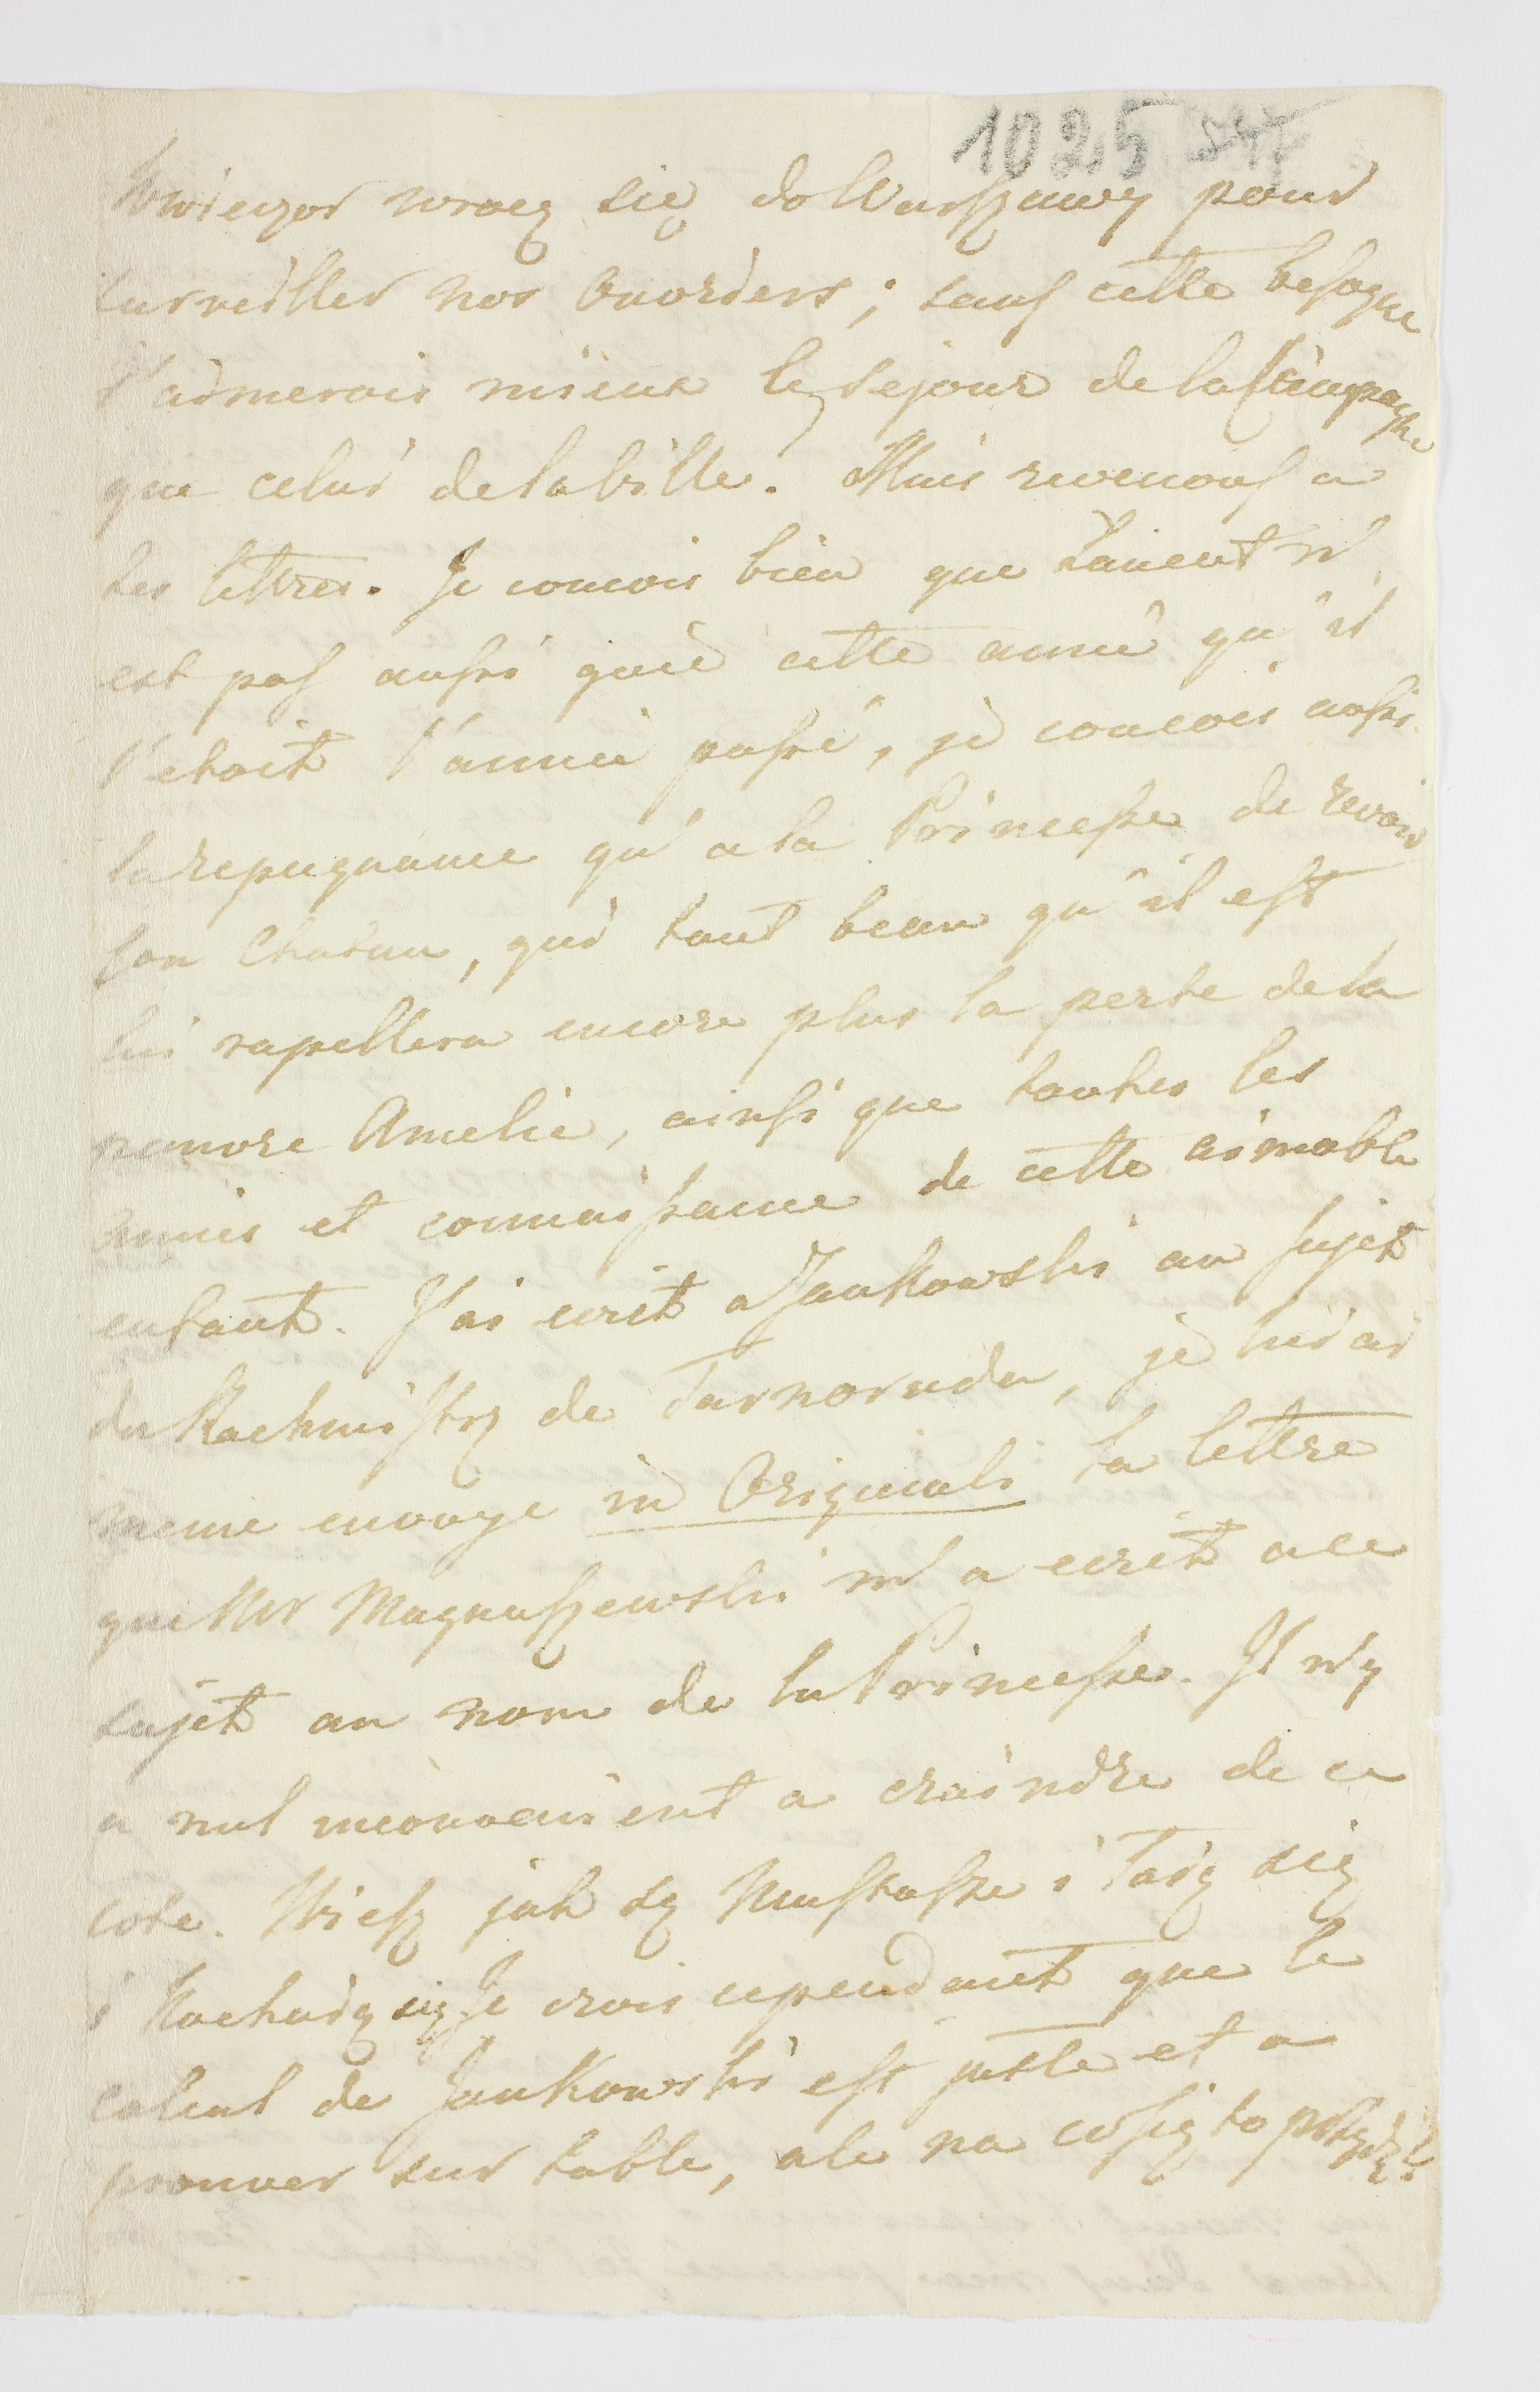 1025
wieczor wrocę się do Warszawy pour
surveiller nos Ouvriers; sauf cette besogne
j'aimerois mieux le sejour de la Campagne
que celui de la Ville. Mais revenons a
tes lettres. Je concois bien que Laneut n'
est pas aussi guié cette année qu'il
l'etoit l'année passé, je concois aussi
la repugnance qu'a la Princesse de revoir
son Chateau, qui tout beau qu'il est
lui rapellera encore plus la perte de la
pauvre Amelie, ainsi que toutes les
amies et connaissance de cette aimable
enfant. J'ai ecrit a Jankowski au sujet
du Rachmistrz de Tarnoruda, je lui ai
meme envoye in Originali la lettre
que Mr Magnuszewski m'a ecrit a ce
sujet au nom de la Princesse. Il n'y
a nul inconvenient a craindre de ce
cote. Wiesz jak są i Tają się
i Kochają się Je crois cependant que le
calcul de Jankowski est juste et a
prouver sur table, ale na cosię to przyda